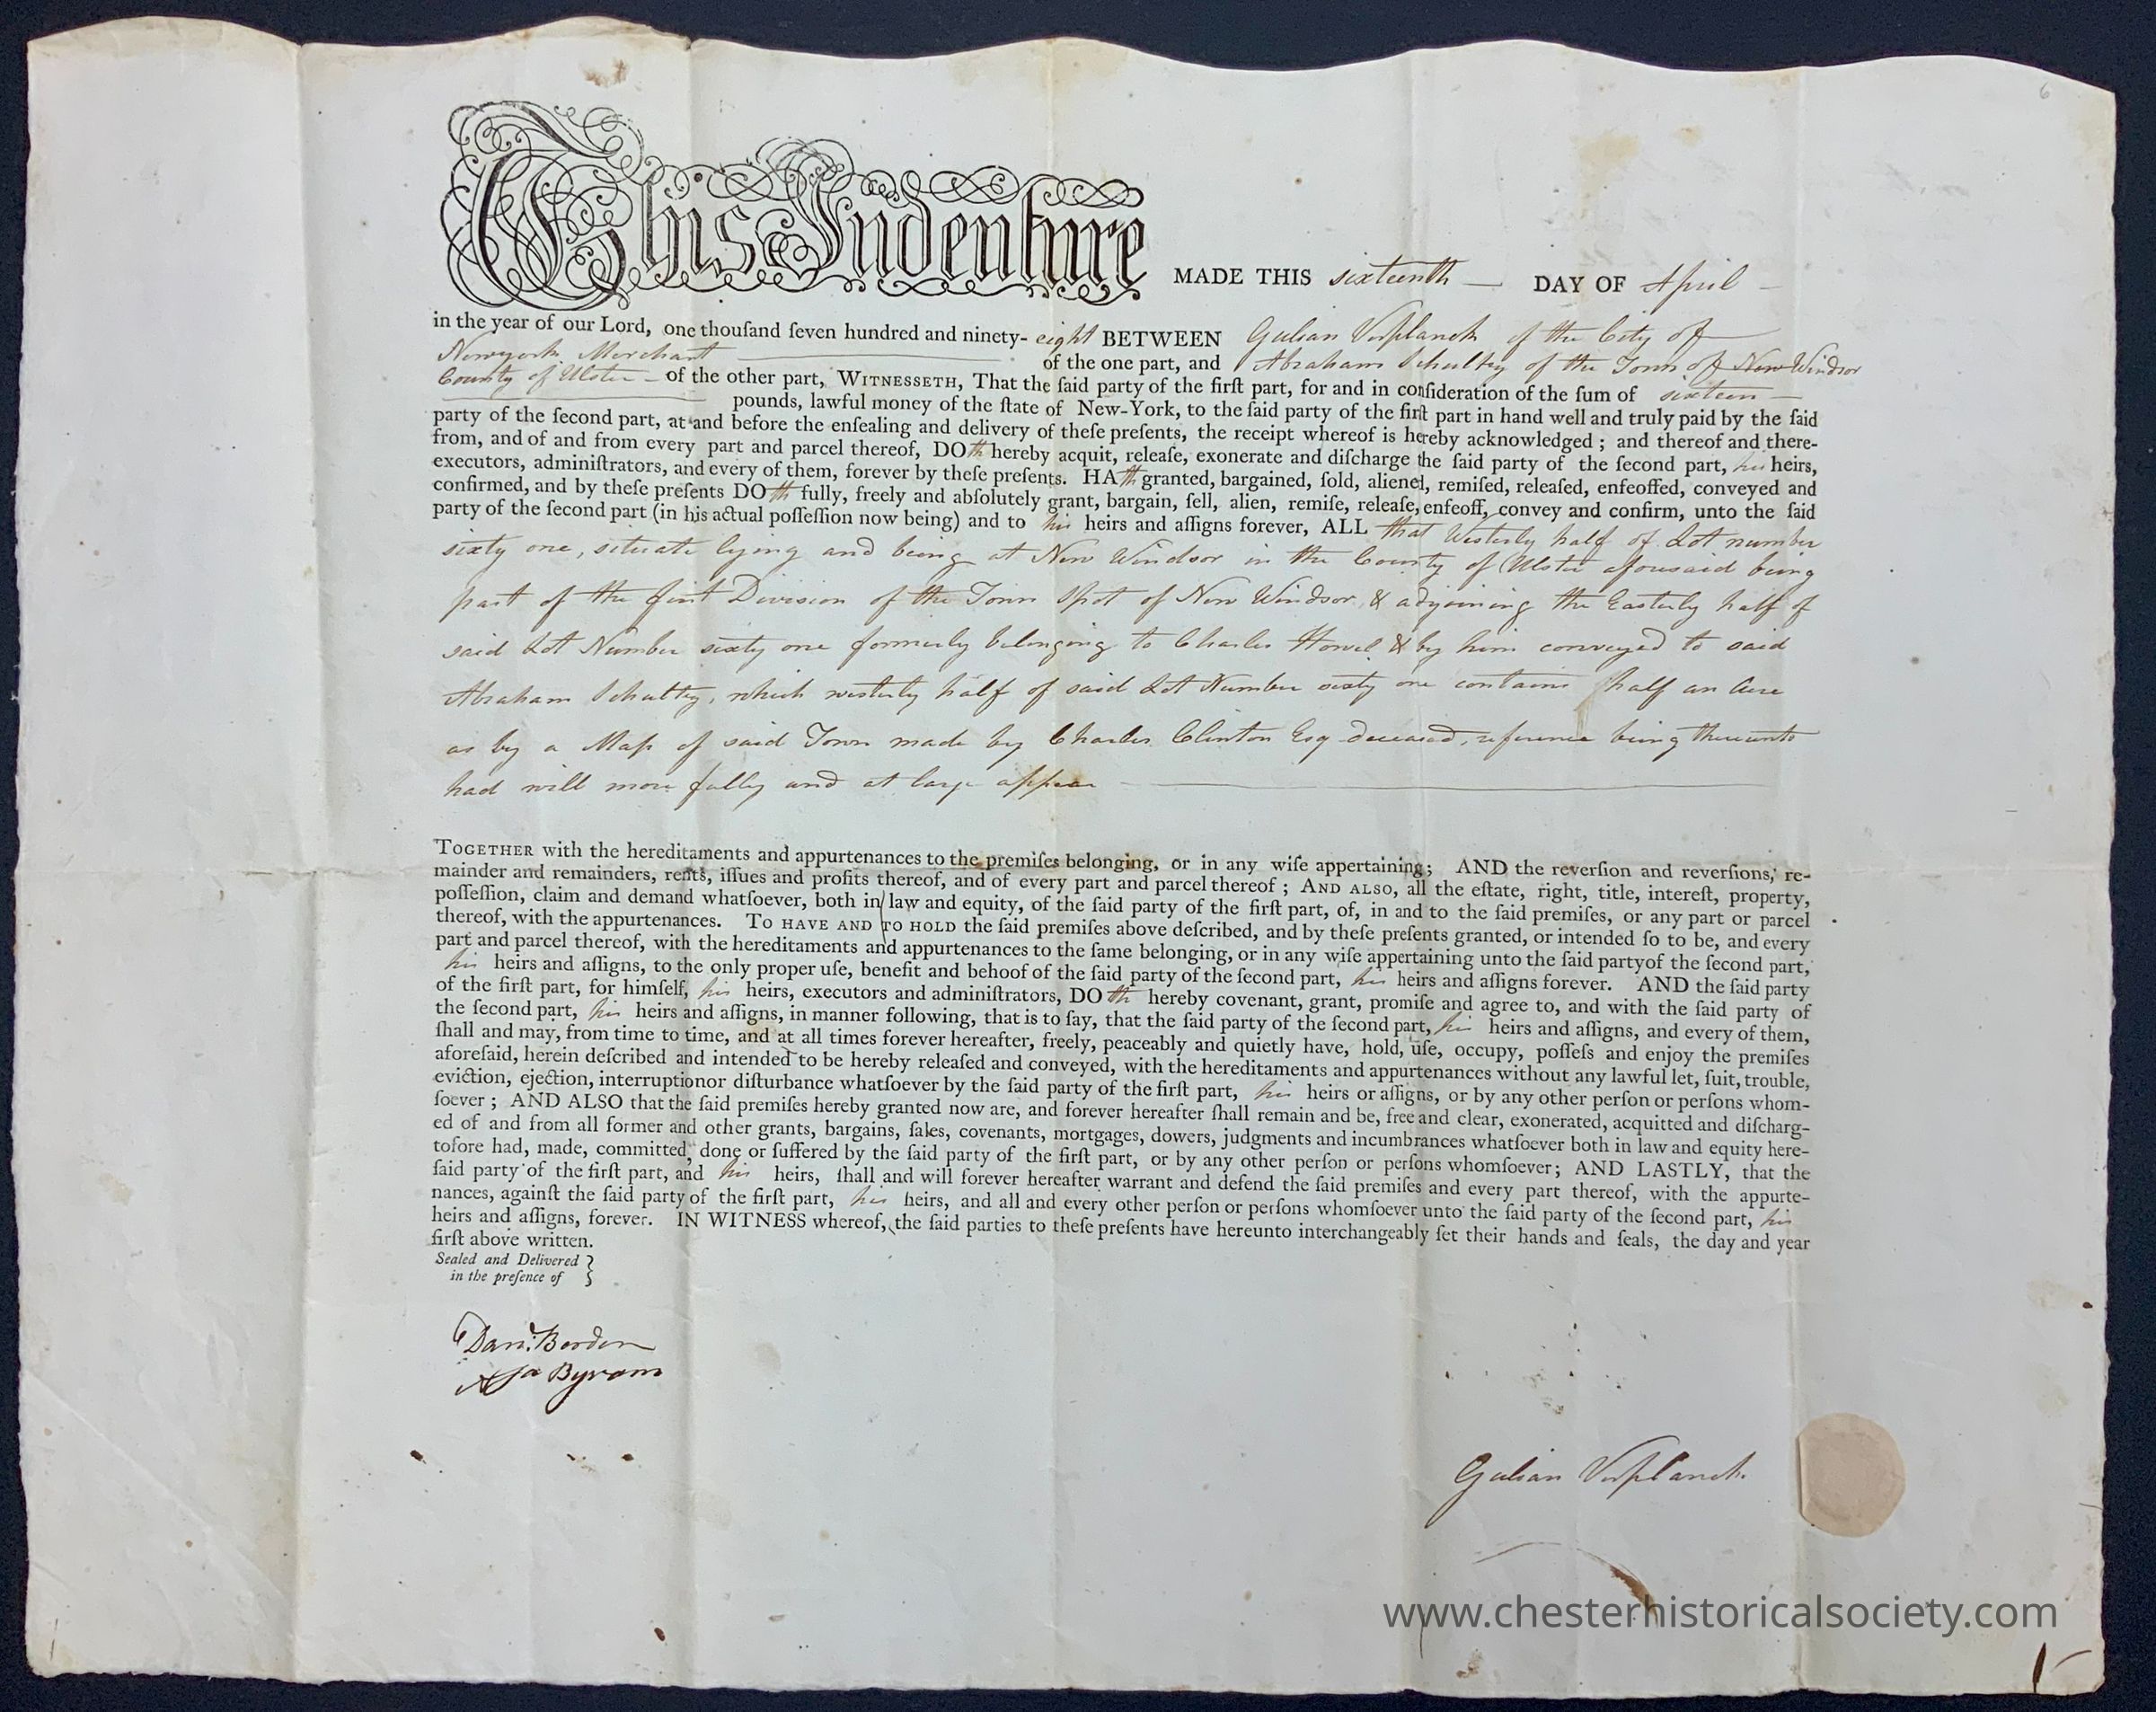 6
This Indenture MADE THIS sixteenth DAY OF April
in the year of our Lord, one thouſand ſeven hundred and ninety- eight BETWEEN Gulian Verplanck of the City of
Newyork Merchant of the one part, and Abraham Schultz of the Town of New Windsor
County of Ulster of the other part, WITNESSETH, That the ſaid party of the firſt part, for and in conſideration of the ſum of sixteen
pounds, lawful money of the ſtate of New-York, to the ſaid party of the firſt part in hand well and truly paid by the ſaid
party of the ſecond part, at and before the enſealing and delivery of theſe preſents, the receipt whereof is hereby acknowledged; and thereof and there-
from, and of and from every part and parcel thereof, DOth hereby acquit, releaſe, exonerate and diſcharge the ſaid party of the ſecond part, his heirs,
executors, adminiſtrators, and every of them, forever by theſe preſents. HAth granted, bargained, ſold, aliened, remiſed, releaſed, enfeoffed, conveyed and
confirmed, and by theſe preſents DOth fully, freely and abſolutely grant, bargain, ſell, alien, remiſe, releaſe, enfeoff, convey and confirm, unto the ſaid
party of the ſecond part (in his actual poſſeſſion now being) and to his heirs and aſſigns forever, ALL that Westerly half of Lot number
sixty one, situate lying and being at New Windsor in the County of Ulster aforesaid being
part of the first Division of the Town Spot of New Windsor & adjoining the Easterly half of
said Lot Number sixty one formerly belonging to Charles Howel & by him conveyed to said
Abraham Schultz, which westerly half of said Lot Number sixty one contains half an Acre
as by a Map of said Town made by Charles Clinton Esq deceased, reference being thereunto
had will more fully and at large appear
TOGETHER with the hereditaments and appurtenances to the premiſes belonging, or in any wiſe appertaining; AND the reverſion and reverſions, re-
mainder and remainders, rents, iſſues and profits thereof, and of every part and parcel thereof; AND ALSO, all the eſtate, right, title, intereſt, property,
poſſeſſion, claim and demand whatſoever, both in law and equity, of the ſaid party of the firſt part, of, in and to the ſaid premiſes, or any part or parcel
thereof, with the appurtenances. TO HAVE AND TO HOLD the ſaid premiſes above deſcribed, and by theſe preſents granted, or intended ſo to be, and every
part and parcel thereof, with the hereditaments and appurtenances to the ſame belonging, or in any wiſe appertaining unto the ſaid partyof the ſecond part,
his heirs and aſſigns, to the only proper uſe, benefit and behoof of the ſaid party of the ſecond part, his heirs and aſſigns forever. AND the ſaid party
of the firſt part, for himſelf, his heirs, executors and adminiſtrators, DOth hereby covenant, grant, promiſe and agree to, and with the ſaid party of
the ſecond part, his heirs and aſſigns, in manner following, that is to ſay, that the ſaid party of the ſecond part, his heirs and aſſigns, and every of them,
ſhall and may, from time to time, and at all times forever hereafter, freely, peaceably and quietly have, hold, uſe, occupy, poſſeſs and enjoy the premiſes
aforeſaid, herein deſcribed and intended to be hereby releaſed and conveyed, with the hereditaments and appurtenances without any lawful let, ſuit, trouble,
eviction, ejection, interruptionor diſturbance whatſoever by the ſaid party of the firſt part, his heirs or aſſigns, or by any other perſon or perſons whom-
ſoever; AND ALSO that the ſaid premiſes hereby granted now are, and forever hereafter ſhall remain and be, free and clear, exonerated, acquitted and diſcharg-
ed of and from all former and other grants, bargains, ſales, covenants, mortgages, dowers, judgments and incumbrances whatſoever both in law and equity here-
tofore had, made, committed, done or ſuffered by the ſaid party of the firſt part, or by any other perſon or perſons whomſoever; AND LASTLY, that the
ſaid party of the firſt part, and his heirs, ſhall and will forever hereafter warrant and defend the ſaid premiſes and every part thereof, with the appurte-
nances, againſt the ſaid party of the firſt part, his heirs, and all and every other perſon or perſons whomſoever unto the ſaid party of the ſecond part, his
heirs and aſſigns, forever. IN WITNESS whereof, the ſaid parties to theſe preſents have hereunto interchangeably ſet their hands and ſeals, the day and year
firſt above written.
Sealed and Delivered }
in the preſence of
Danl. Borden
Asa Byram
Gulian Verplanck
www.chesterhistoricalsociety.com